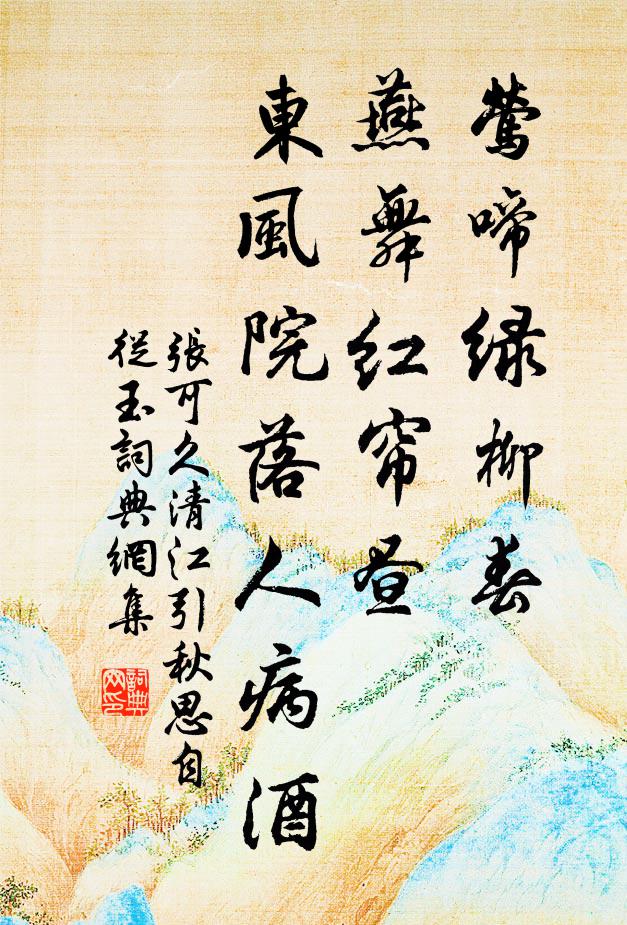 鶯啼緑柳春
燕舞红帘昼
東風院落人病酒
張可久清江引秋思自
從玉詞典網集
詞典
网印